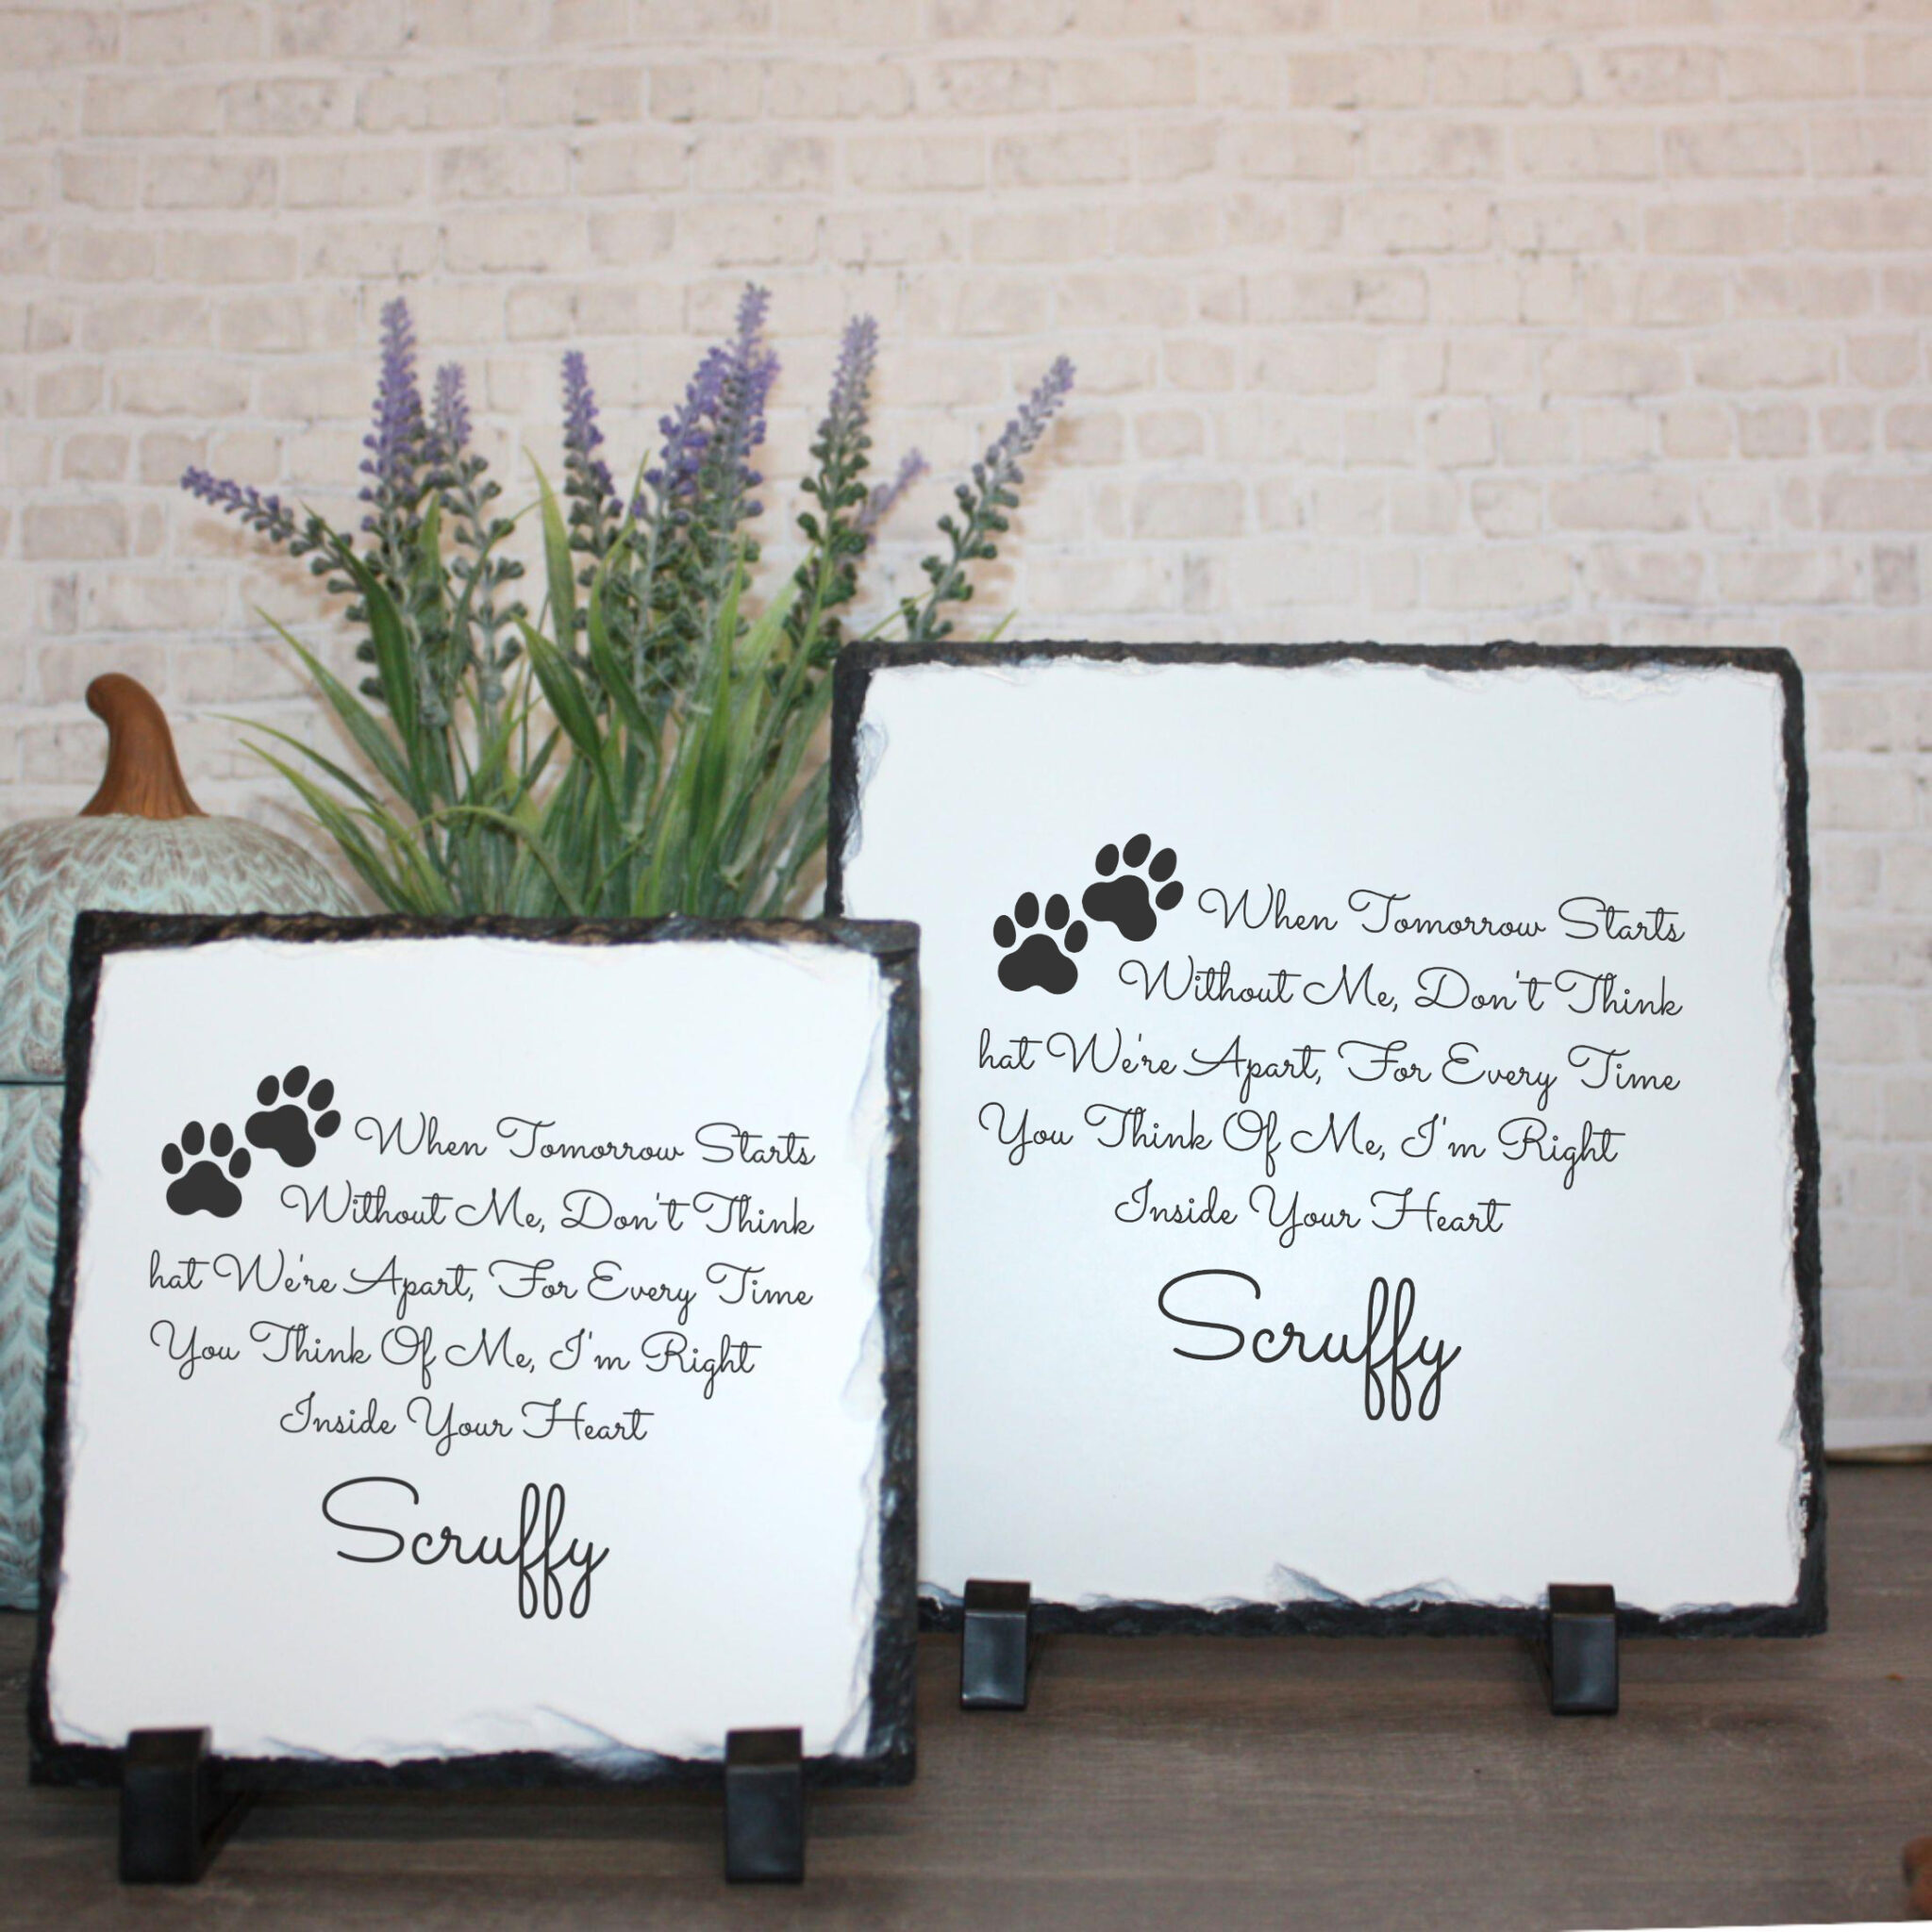 When Tomorrow Starts
Without Me, Don't Think
hat We're Apart, For Every Time
You Think Of Me, I'm Right
Inside Your Heart
Scruffy
When Tomorrow Starts
Without Me, Don't Think
hat We're Apart, For Every Time
You Think Of Me, I'm Right
Inside Your Heart
Scruffy